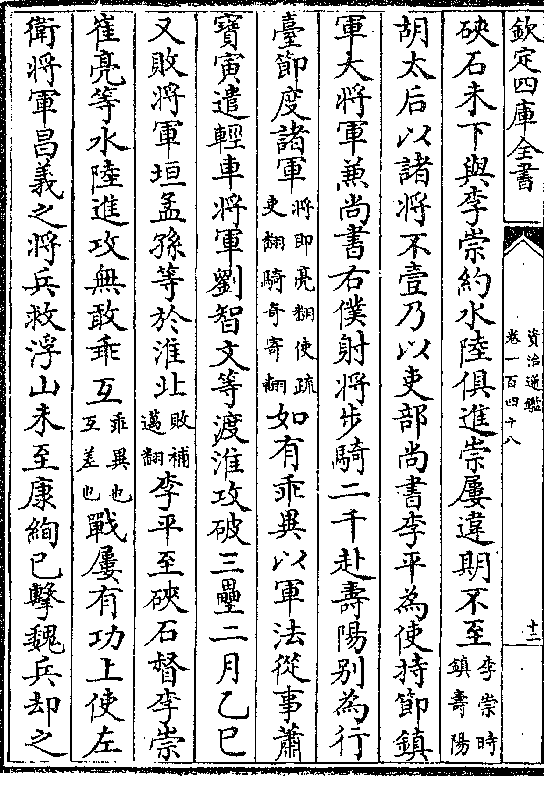 欽定四庫全書
資治通鑑
卷一百四十八
十二
硤石未下與李崇約水陸俱進崇屢違期不至李崇時鎮壽陽
胡太后以諸將不壹乃以吏部尚書李平為使持節鎮
軍大將軍兼尚書右僕射將步騎二千赴壽陽别為行
臺節度諸軍將即亮翻使疏吏翻騎奇寄翻如有乖異以軍法從事蕭
寶寅遣輕車將軍劉智文等渡淮攻破三壘二月乙巳
又敗將軍垣孟孫等於淮北敗補邁翻李平至硤石督李崇
崔亮等水陸進攻無敢乖互乖異也互差也戰屢有功上使左
衛將軍昌義之將兵救浮山未至康絢已擊魏兵却之